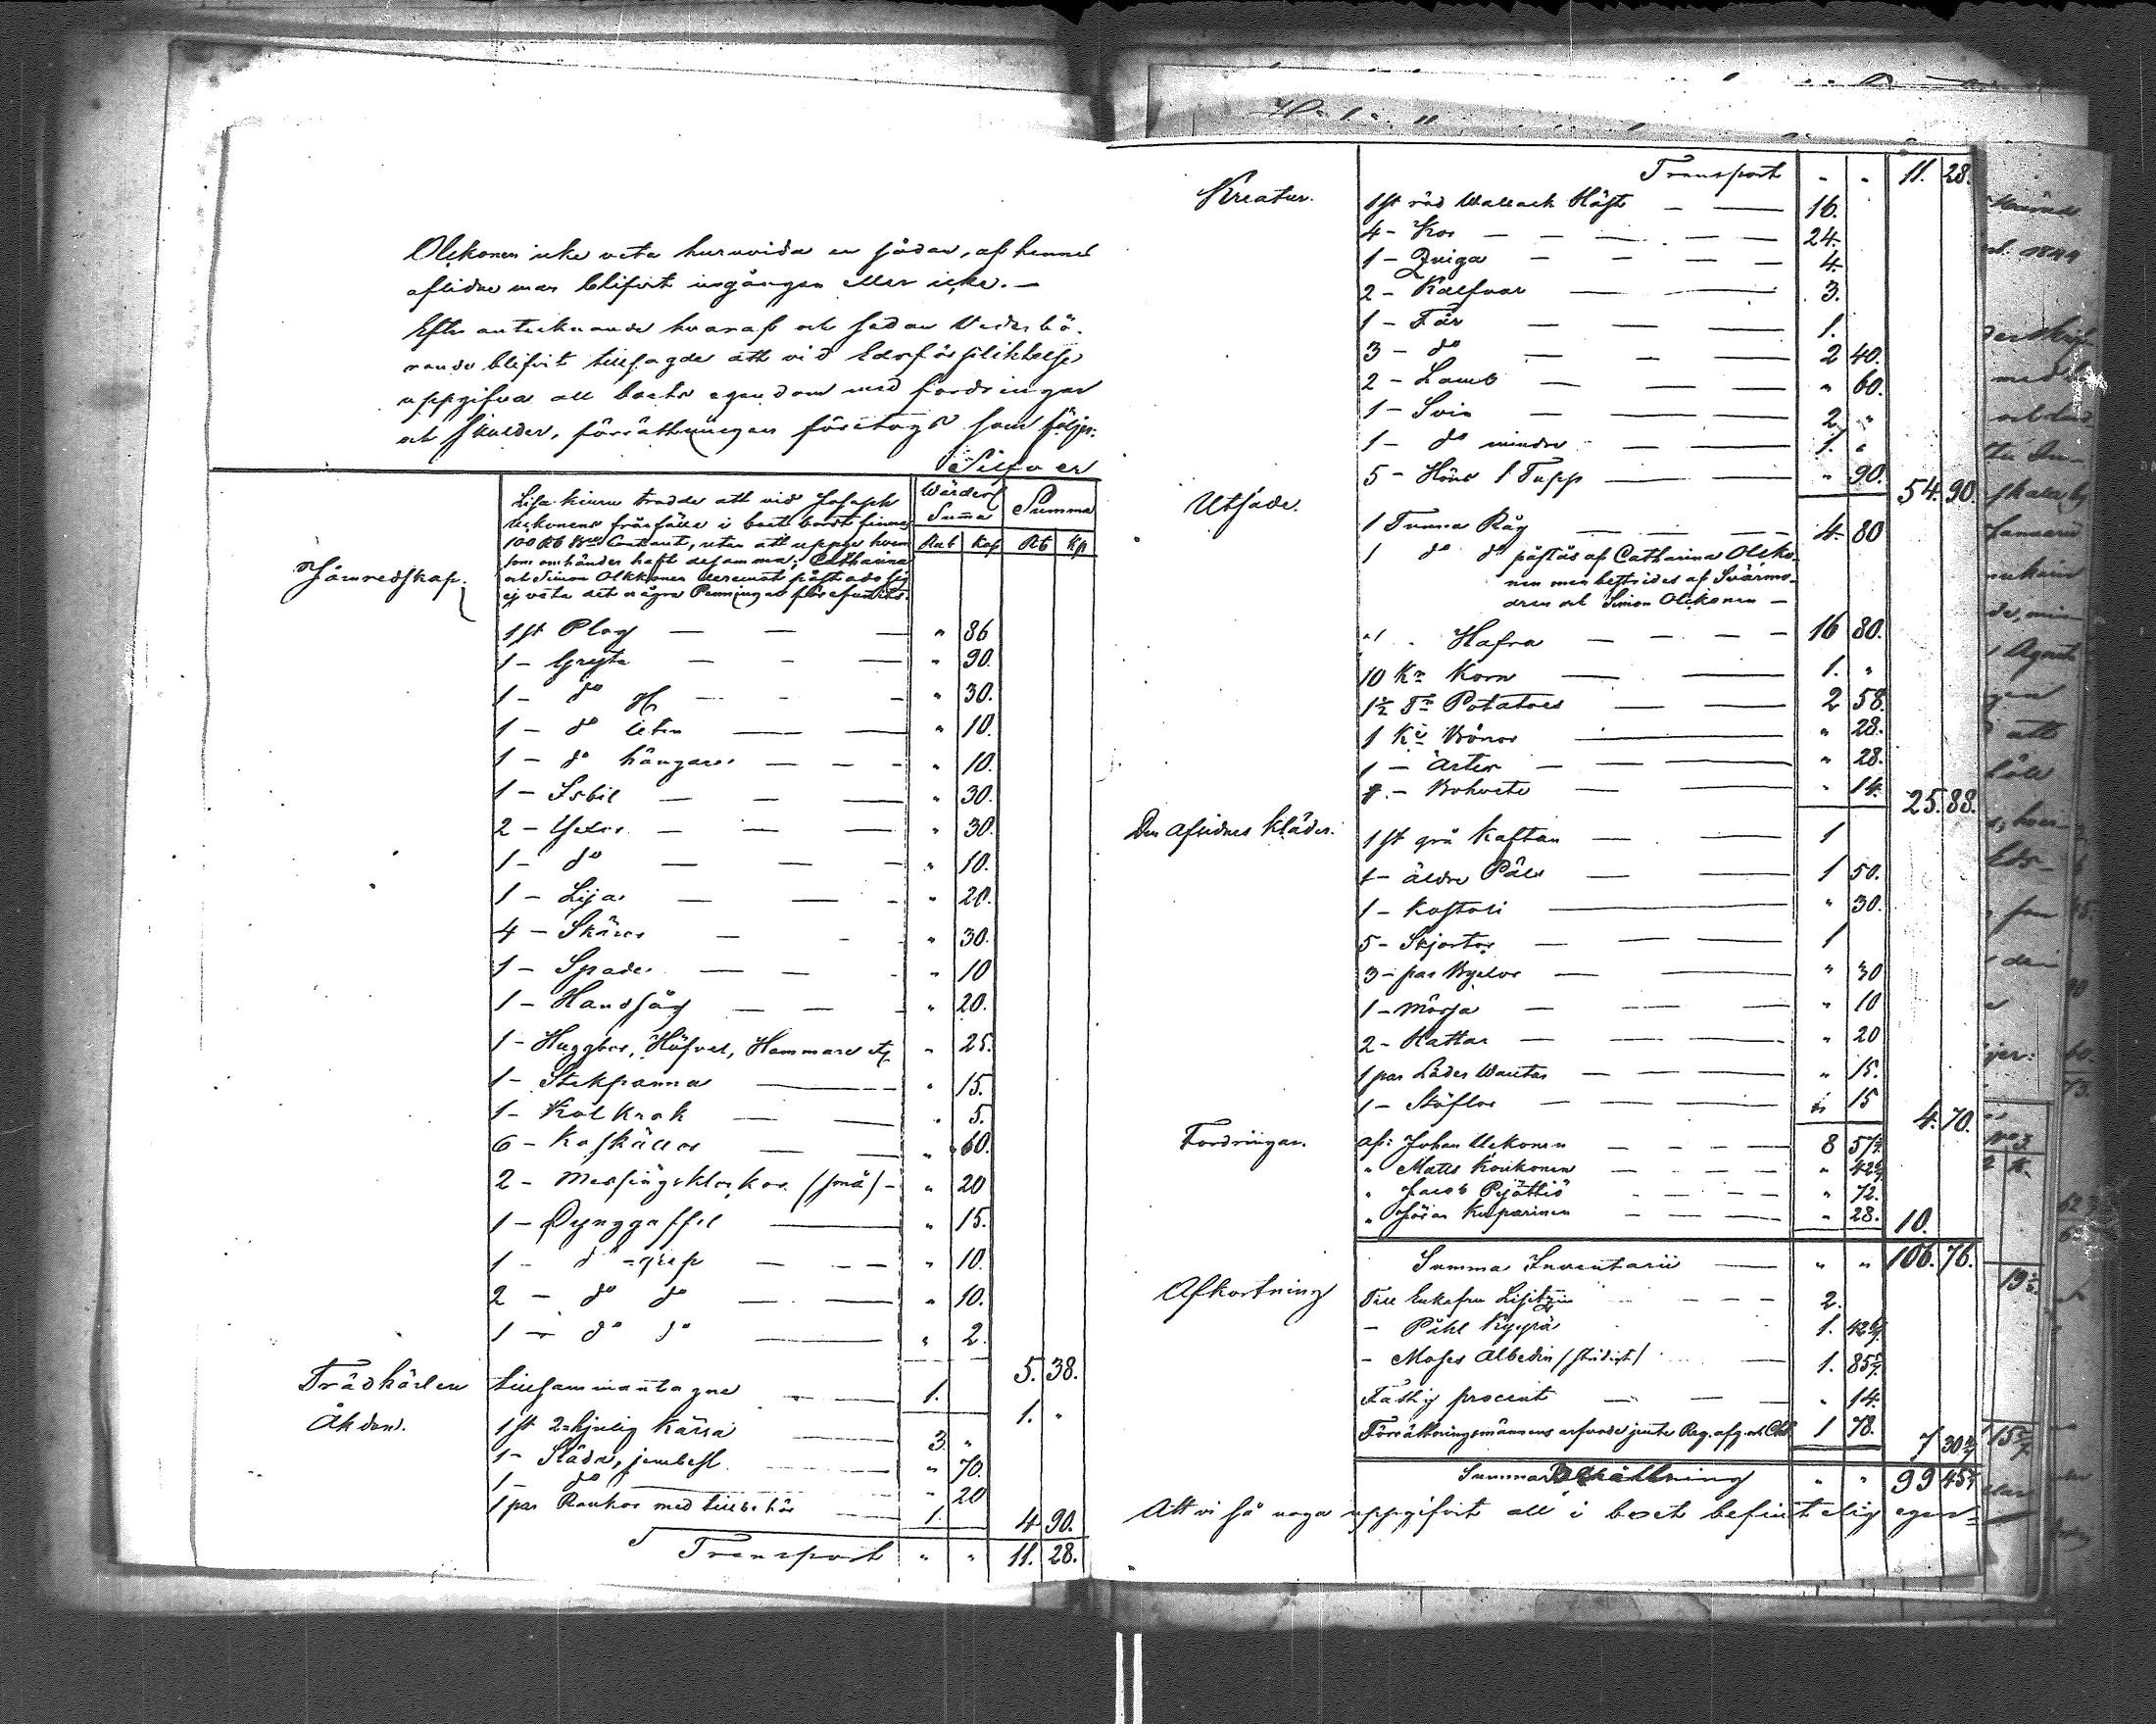 Olckonen icke veta huruvida en sådan, af hennes
aflidne man blifvit ingången eller icke. —
Efter antecknande hvaraf och sedan Vederbö-
rande blifvit tillsagde att vid Edsförpliktelse
uppgifva all boets egendom med fordringar
och skulder, förrättningen företogs som följer.
Silfver
Lisa Kiuru trodde att vid Joseph
Olckonens frånfälle i boet bordt finnas
100 Rb Contant, utan att uppge hvem
som om händer haft desamma; Catharina
och Simon Olkkonen deremot påstodo sig
ej veta det några Penningar
Wärder Summa
Summa
Rub Kop Rb Kp
Järnredskap.
1 st Plog — — — " 86
1 — Gryta — — — " 90.
1 — do — — " 30.
1 — do liten — — " 10.
1 — do hängare — — — " 10.
1 — Isbil — — — " 30.
2 — Yxor — — — " 30.
1 — do — — — " 10.
1 — Lija — — — " 20.
4 — Skäror — — — " 30.
1 — Spade — — — " 10
1 — Handsåg — — — " 20.
1 — Huggbor, Höfvel, Hammare " 25.
1 — Stekpanna — " 15.
1 — Kol krok — — " 5.
6 — Koskällor — — " 60.
2 — Messingsklockor (små) — " 20
1 — Dynggaffel — " 15.
1 — do = grep — — — " 10.
2 — do do — — " 10.
1 — do do — " 2.
5. 38.
Trädkärlen tillsammantagne — — 1.
1. "
Åkdon. 1 st 2=hjulig Kärra — 3 "
1 — Släda, jernbesl. — " 70.
1 — do — " 20
1 par Rankor med tillbehör — 1.
4. 90.
Transport " " 11. 28.
Transport " " 11. 28.
Kreatur. 1 st röd Wallack Häst — — 16.
4 — Kor — — — — — 24.
1 — Qviga — — — — 4.
2 — Kalfvar — — 3.
1 — Får — — — 1.
3 — do — — — 2 40.
2 — Lamb — — — " 60.
1 — Svin — — — 2. "
1 — do mindre — — 1. "
5 — Höns 1 Tupp — — " 90.
54. 90.
Utsäde. 1 Tunna Råg — — — 4. 80
1 do do påstås af Catharina Olcko-
nen men bestrides af Svärmo-
dren och Simon Olckonen —
" 1 " Hafra — — — — 16 80.
10 Kr Korn — — 1. "
1½ Tr Potatoes — — 2 58.
1 Kr Bönor — " 28.
1 — Ärter — — — " 28.
— Bohvete — — " 14.
25. 88.
Den Aflidnes Kläder. 1 st grå Kaftan — — 1
1 — äldre Päls — — 1 50.
1 — Kostoli — " 30.
5 — Skjortor — — — 1
3 — par Byxor — — — " 30
1 — Mössa — — — " 10
2 — Hattar — — — " 20
1 par Läder Wantar — — — " 15.
1 — Stöflor — — — — " 15
4. 70.
Fordringar. af: Johan Olckonen — — — — 8 57
" Matts — — — — " 42
" Jacob — — — — " 72.
" Göran Kasparinen — — — " 28.
10.
Summa Inventarii — " " 106. 76.
Afkortning Till Enkefru Lisitzin — — — 2.
— Påhl 1. 42
— Moses Albedin — 1. 85
Fattig procent — — — " 14.
Förrättningsmännens arfvode 1 78.
7 30
Summa Behållning " " 99 45
Att vi så noga uppgifvit all i boet befintelig egen=